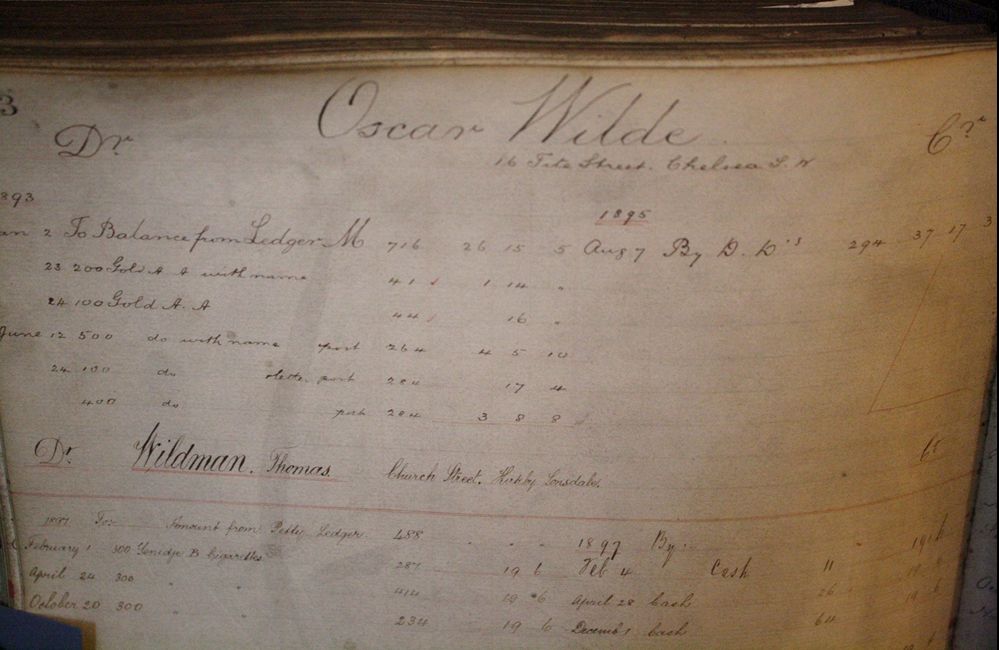 3
Oscar Wilde
Dr Cr
16 Tite Street. Chelsea S. W
893 1895
an 2 To Balance from Ledger M 716 26 15 5 Aug 7 By D. D's 294 37 17 3
23 200 Gold A A with name 41 1 14 "
24 100 Gold A. A 44 16 "
June 12 500 do with name post 264 4 5 10
24 100 do letter post 284 17 4
400 do post 284 3 8 8
Dr. Wildman. Thomas. Church Street. Kirkby Lonsdale. Cr
1897 To Amount from Petty Ledger 488 1897 By
February 1 300 B Cigarettes 287 19 6 Feb 4 Cash 11
April 24 300 " " 414 19 6 April 28 Cash 26
October 20 300 " " 234 19 6 Decemb 1 Cash 64